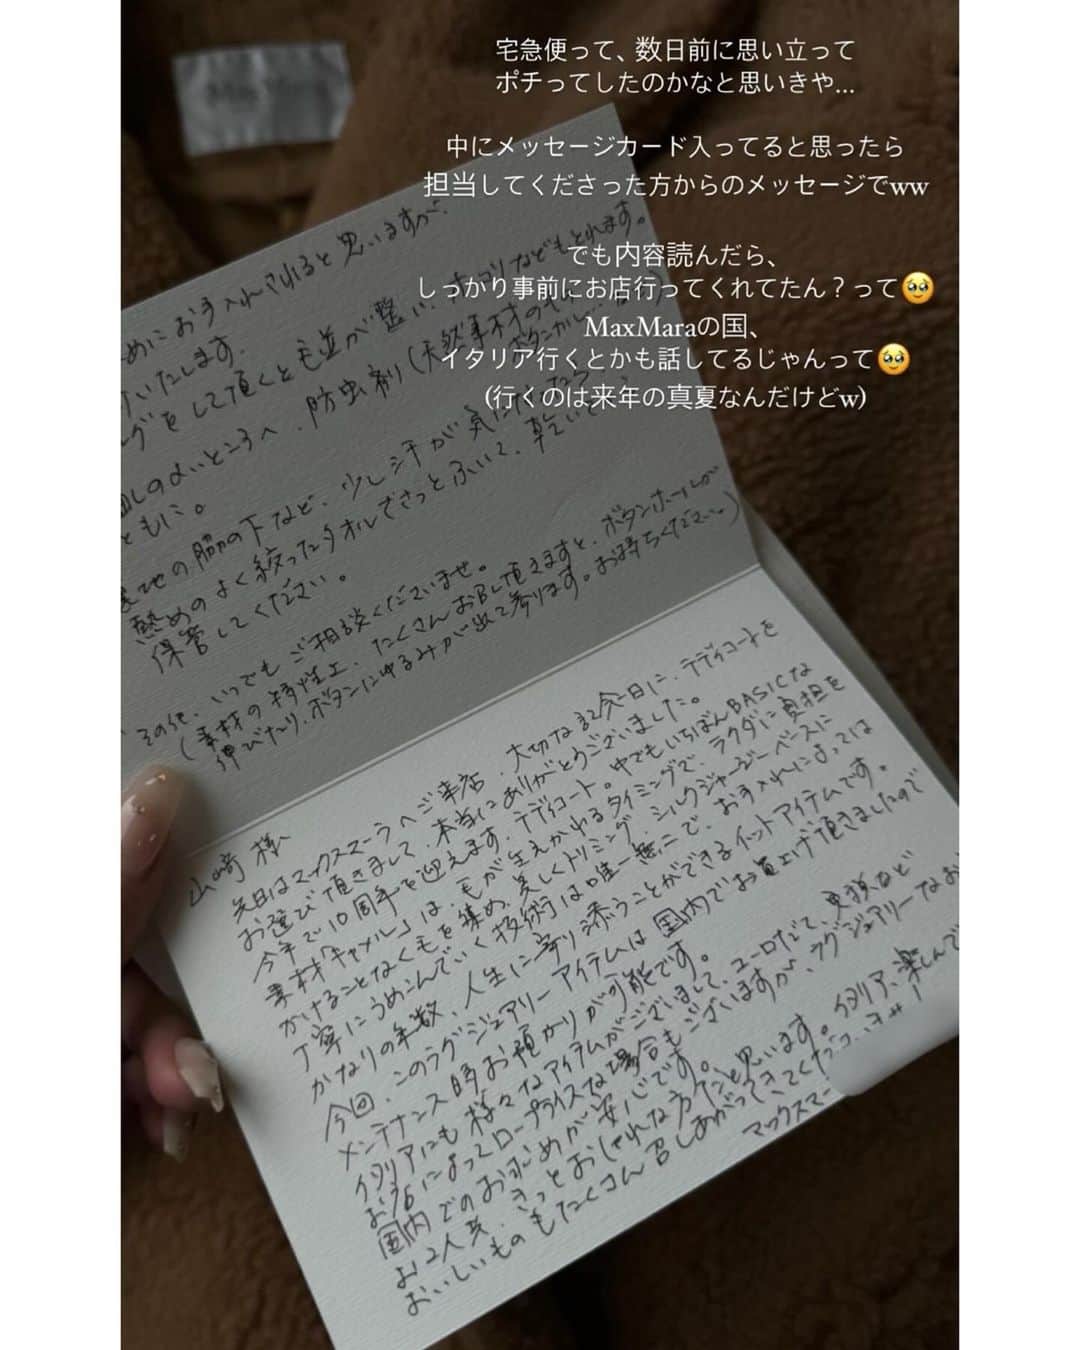 宅急便って、数日前に思い立って
ポチってしたのかなと思いきや...
中にメッセージカード入ってると思ったら
担当してくださった方からのメッセージでww
でも内容読んだら、
しっかり事前にお店行ってくれてたん？って🥹
MaxMaraの国、
イタリア行くとかも話してるじゃんって🥹
(行くのは来年の真夏なんだけどw)
MaxMara
めにお手入れされると思いますが、
いたします。
をして頂くと毛並が整い、ホコリなどもとれます。
しのよいところへ、防虫剤(天然素材のもの
ともに。
裏地の脇の下など、少し汗が気になったら、
堅めのよく絞ったタオルでさっとふいて、乾いた
保管してください。
その他、いつでもご相談くださいませ。
(素材の特性上、たくさんお召し頂きますと、ボタンホールが
伸びたり、ボタンにゆるみが出て参ります。お持ちください)
山﨑様へ
先日はマックスマーラへご来店、大切な記念日に、テディコートを
お選び頂きまして、本当にありがとうございました。
今年で10周年を迎えます、テディコート。中でもいちばんBASICな
素材「キャメル」は、毛が生えかわるタイミングで、ラクダに負担を
かけることなく毛を集め、美しくトリミング、シルクジャージーベースに
丁寧にうめこんでいく技術は唯一無二で、お手入れによっては
かなりの年数、人生に寄り添うことができるイットアイテムです。
今回、このラグジュアリーアイテムは国内でお買上げ頂きましたので
メンテナンス時お預かりが可能です。
イタリアにも様々なアイテムがございまして、ユーロだて、免税など
お店によってロープライスな場合もございますが、ラグジュアリーなお
国内でのお求めが安心です。
お2人共、きっとおしゃれな方だと思います。イタリア、楽しんで
おいしいものもたくさん召しあがってきてくださいませ！
マックスマー